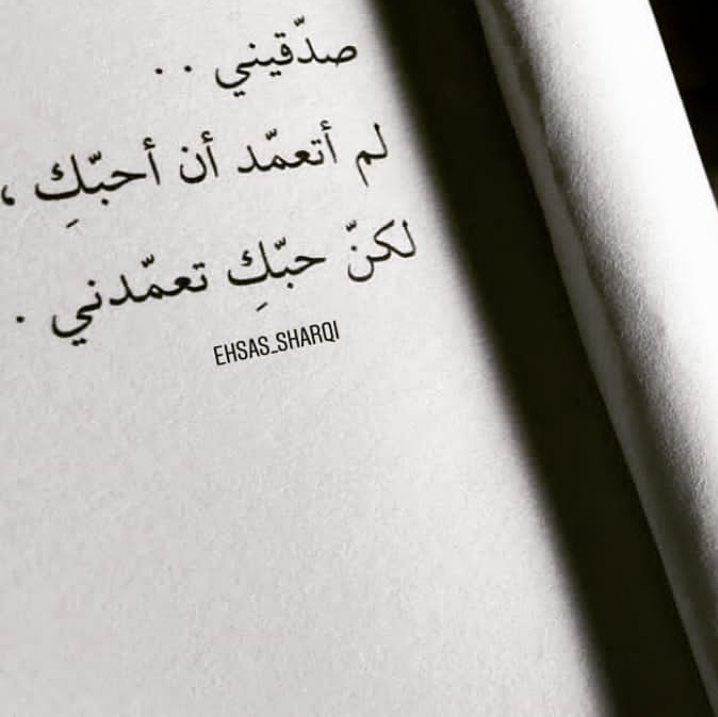 صدّقيني . .
لم أتعمّد أن أحبّكِ ،
لكنّ حبّكِ تعمّدني .
EHSAS_SHARQI